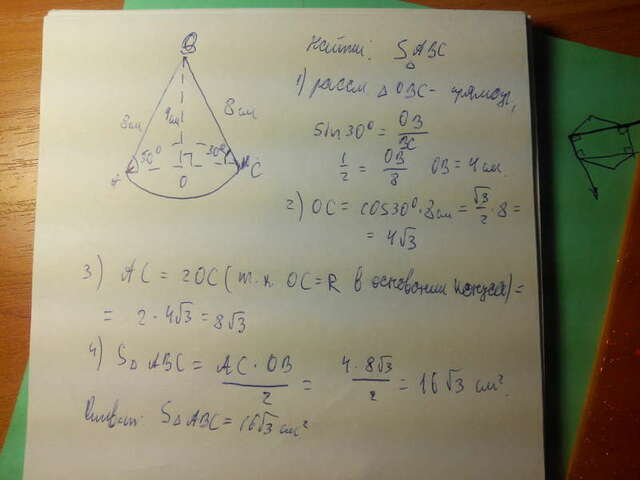 B
8 см
4 см
8 см
30°
30°
A
O
C
Найти: S△ABC
1) рассм △OBC - прямоуг,
sin 30° = OB/BC
1/2 = OB/8 OB = 4 см.
2) OC = cos30° · 8 см = √3/2 · 8 =
= 4√3
3) AC = 2OC (т.к. OC = R в основании конуса) =
= 2 · 4√3 = 8√3
4) S△ABC = AC · OB/2 = 4 · 8√3/2 = 16√3 см².
Ответ: S△ABC = 16√3 см²